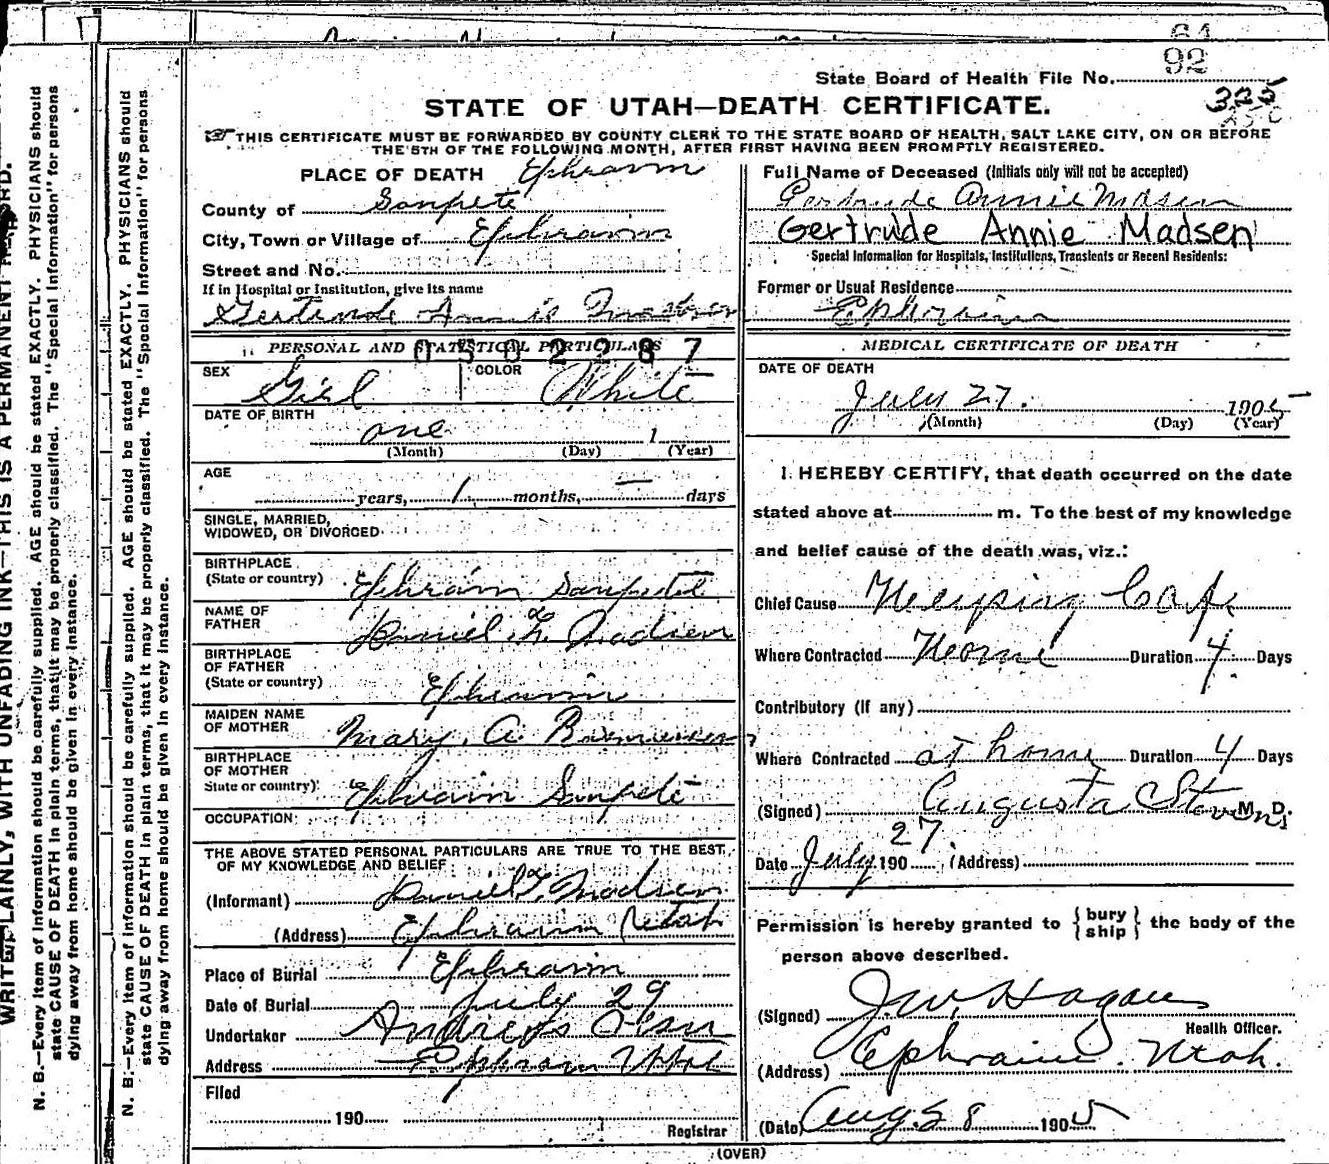 64
92
State Board of Health File No.
325
STATE OF UTAH—DEATH CERTIFICATE.
THIS CERTIFICATE MUST BE FORWARDED BY COUNTY CLERK TO THE STATE BOARD OF HEALTH, SALT LAKE CITY, ON OR BEFORE
THE 5TH OF THE FOLLOWING MONTH, AFTER FIRST HAVING BEEN PROMPTLY REGISTERED.
PLACE OF DEATH Ephraim
County of Sanpete
City, Town or Village of Ephraim
Street and No.
If in Hospital or Institution, give its name
Gertrude Annie Madsen
PERSONAL AND STATISTICAL PARTICULARS
0502287
SEX Girl COLOR White
DATE OF BIRTH
one 1
(Month) (Day) (Year)
AGE
years, 1 months, — days
SINGLE, MARRIED,
WIDOWED, OR DIVORCED
BIRTHPLACE
(State or country) Ephraim Sanpete
NAME OF
FATHER Daniel F. Madsen
BIRTHPLACE
OF FATHER
(State or country) Ephraim
MAIDEN NAME
OF MOTHER Mary A.
BIRTHPLACE
OF MOTHER
State or country) Ephraim Sanpete
OCCUPATION
THE ABOVE STATED PERSONAL PARTICULARS ARE TRUE TO THE BEST
OF MY KNOWLEDGE AND BELIEF
(Informant) Daniel F. Madsen
(Address) Ephraim Utah
Place of Burial Ephraim
Date of Burial July 29
Undertaker Andrew
Address Ephram Utah
Filed
190
Registrar
Full Name of Deceased (Initials only will not be accepted)
Gertrude Annie Madsen
Gertrude Annie Madsen
Special Information for Hospitals, Institutions, Transients or Recent Residents:
Former or Usual Residence
Ephraim
MEDICAL CERTIFICATE OF DEATH
DATE OF DEATH
July 27. 1905
(Month) (Day) (Year)
I HEREBY CERTIFY, that death occurred on the date
stated above at m. To the best of my knowledge
and belief cause of the death was, viz.:
Chief Cause
Where Contracted Home Duration 4 Days
Contributory (If any)
Where Contracted at home Duration 4 Days
(Signed) Augusta Stevens M. D.
27
Date July 190 (Address)
Permission is hereby granted to { bury ship } the body of the
person above described.
(Signed) J. W. Hagans
Health Officer.
(Address) Ephraim. Utah.
(Date) Aug 8 1905
(OVER)
WRITE PLAINLY, WITH UNFADING INK—THIS IS A PERMANENT RECORD.
N. B.—Every item of information should be carefully supplied. AGE should be stated EXACTLY. PHYSICIANS should
state CAUSE OF DEATH in plain terms, that it may be properly classified. The "Special Information" for persons
dying away from home should be given in every instance.
N. B.—Every item of information should be carefully supplied. AGE should be stated EXACTLY. PHYSICIANS should
state CAUSE OF DEATH in plain terms, that it may be properly classified. The "Special Information" for persons
dying away from home should be given in every instance.